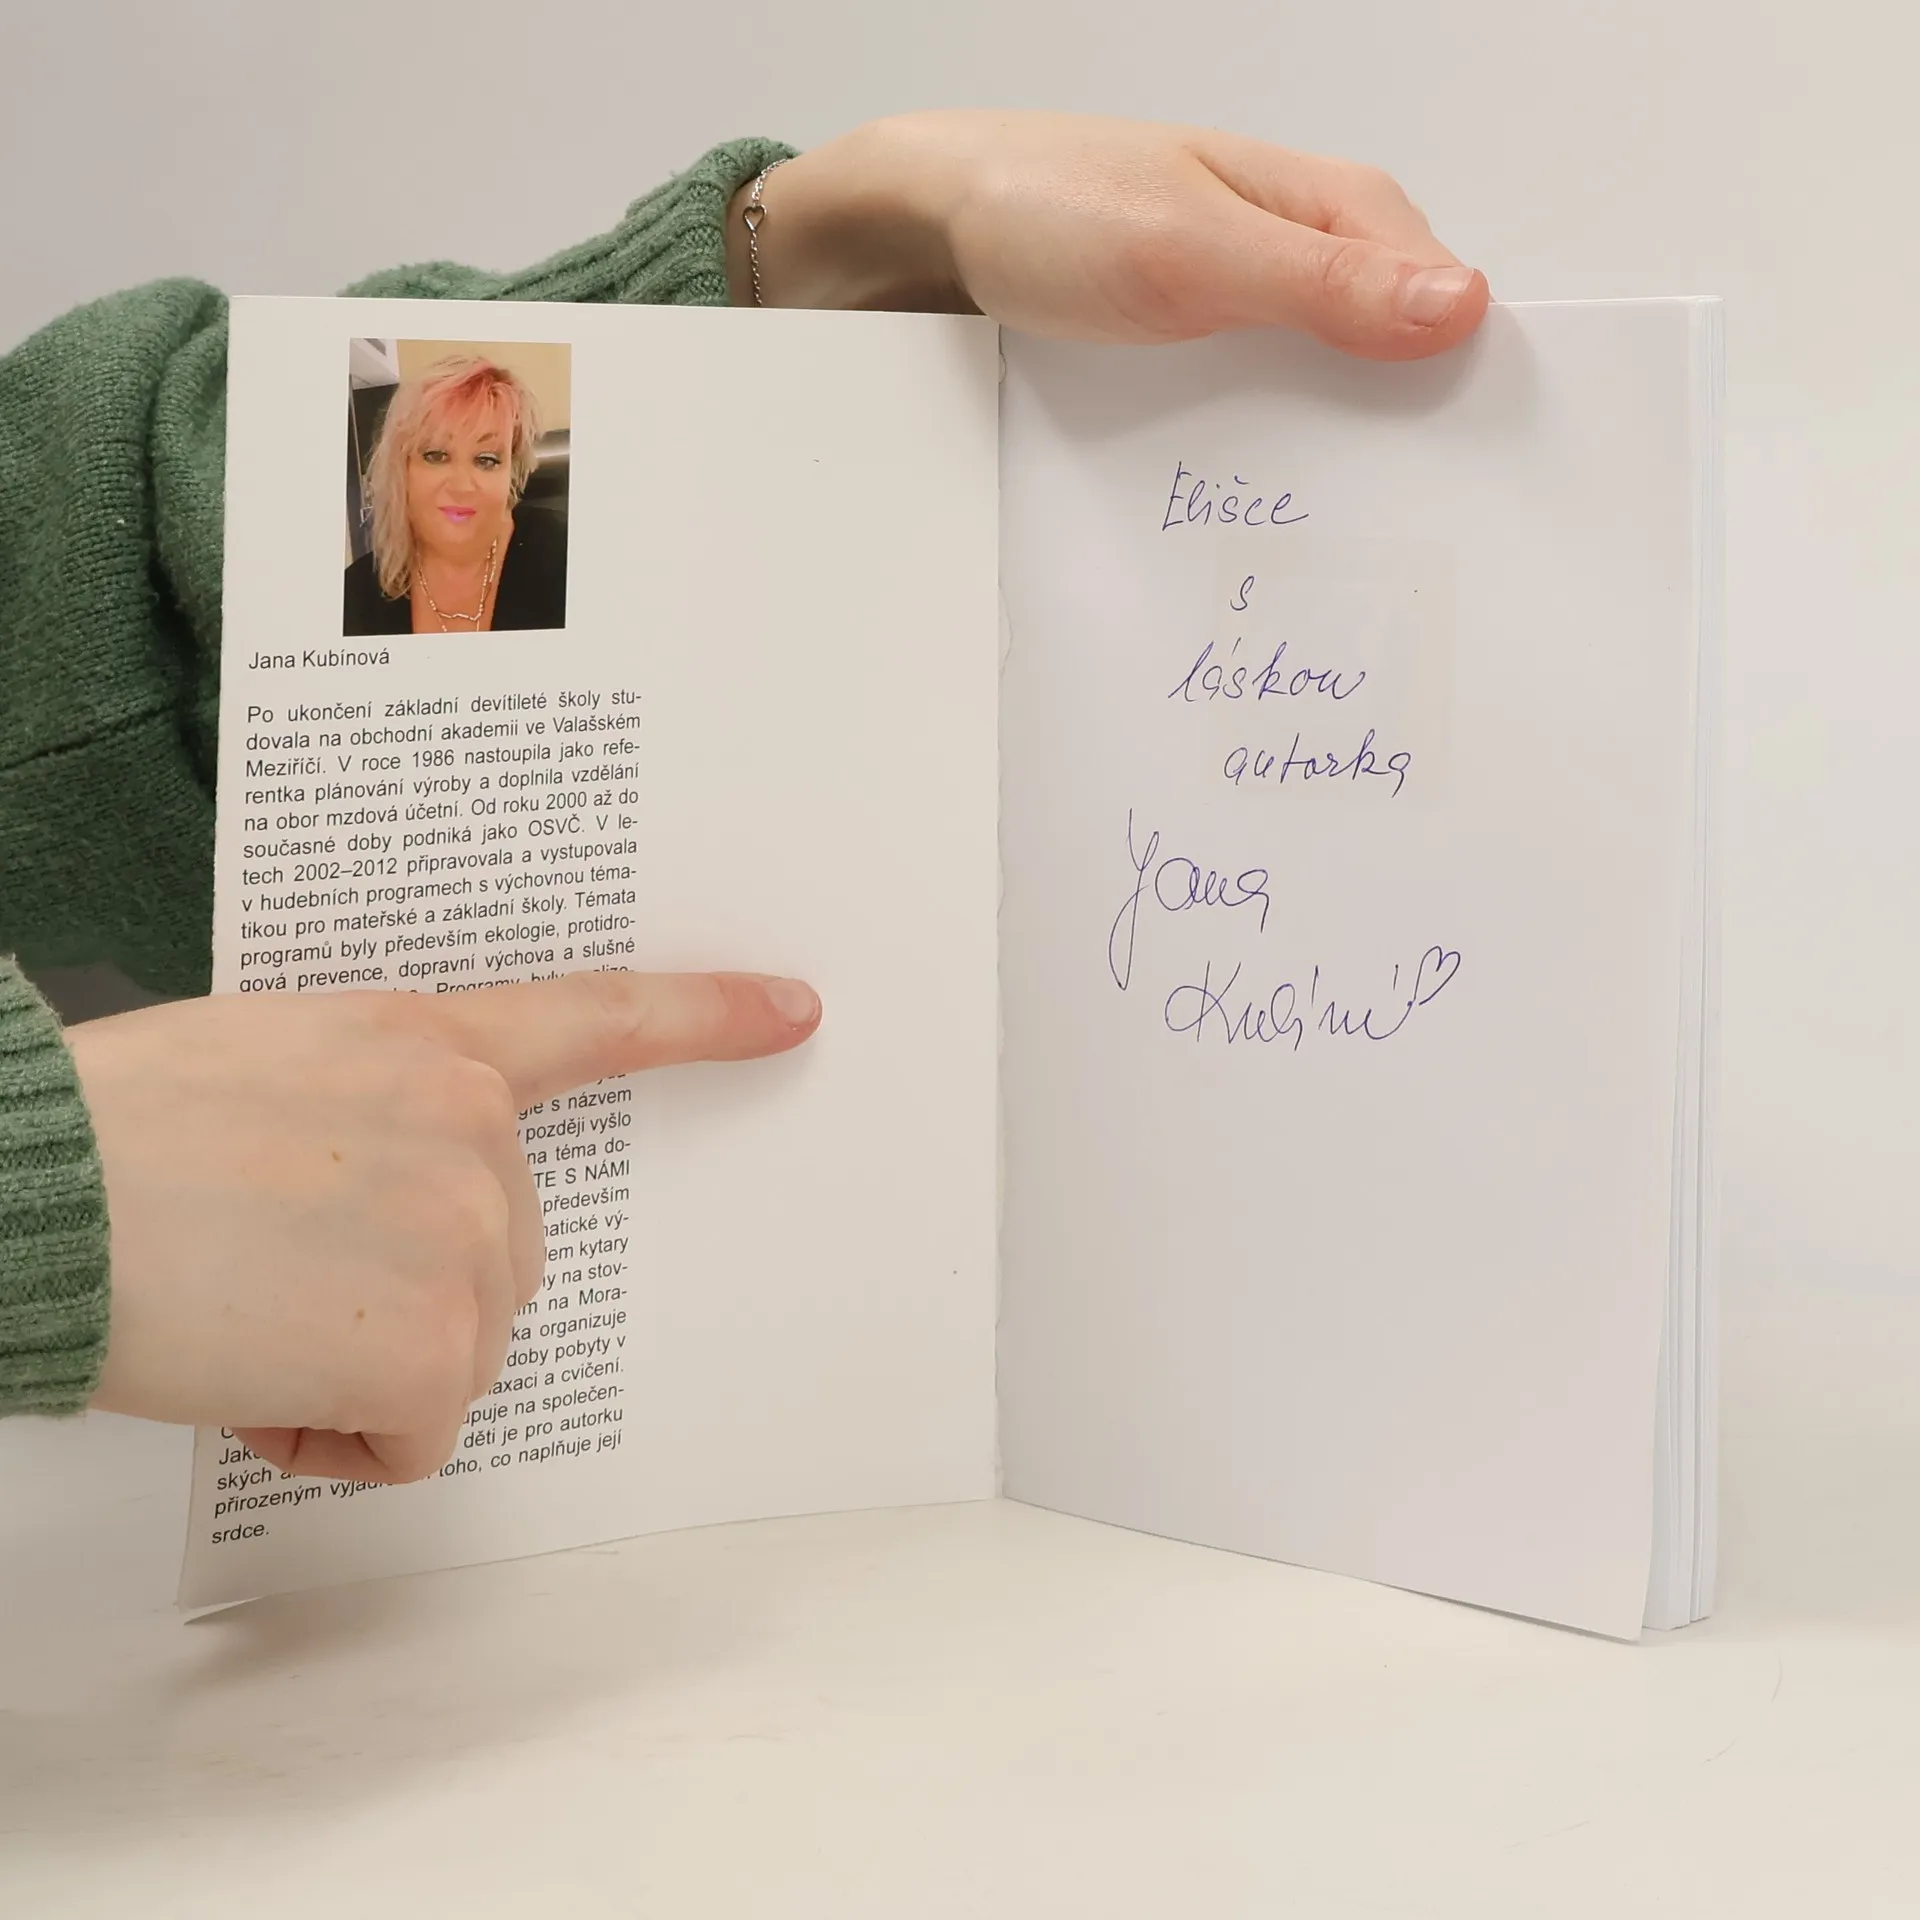 Jana Kubínová
Po ukončení základní devítileté školy stu-
dovala na obchodní akademii ve Valašském
Meziříčí. V roce 1986 nastoupila jako refe-
rentka plánování výroby a doplnila vzdělání
na obor mzdová účetní. Od roku 2000 až do
současné doby podniká jako OSVČ. V le-
tech 2002–2012 připravovala a vystupovala
v hudebních programech s výchovnou téma-
tikou pro mateřské a základní školy. Témata
programů byly především ekologie, protidro-
gová prevence, dopravní výchova a slušné
Programy byly
s názvem
později vyšlo
na téma do-
TE S NÁMI
především
matické vý-
lem kytary
na stov-
na Mora-
ka organizuje
doby pobyty v
laxaci a cvičení.
upuje na společen-
děti je pro autorku
ských
toho, co naplňuje její
přirozeným
srdce.
Elišce
s
láskou
autorka
Jana
Kubínová